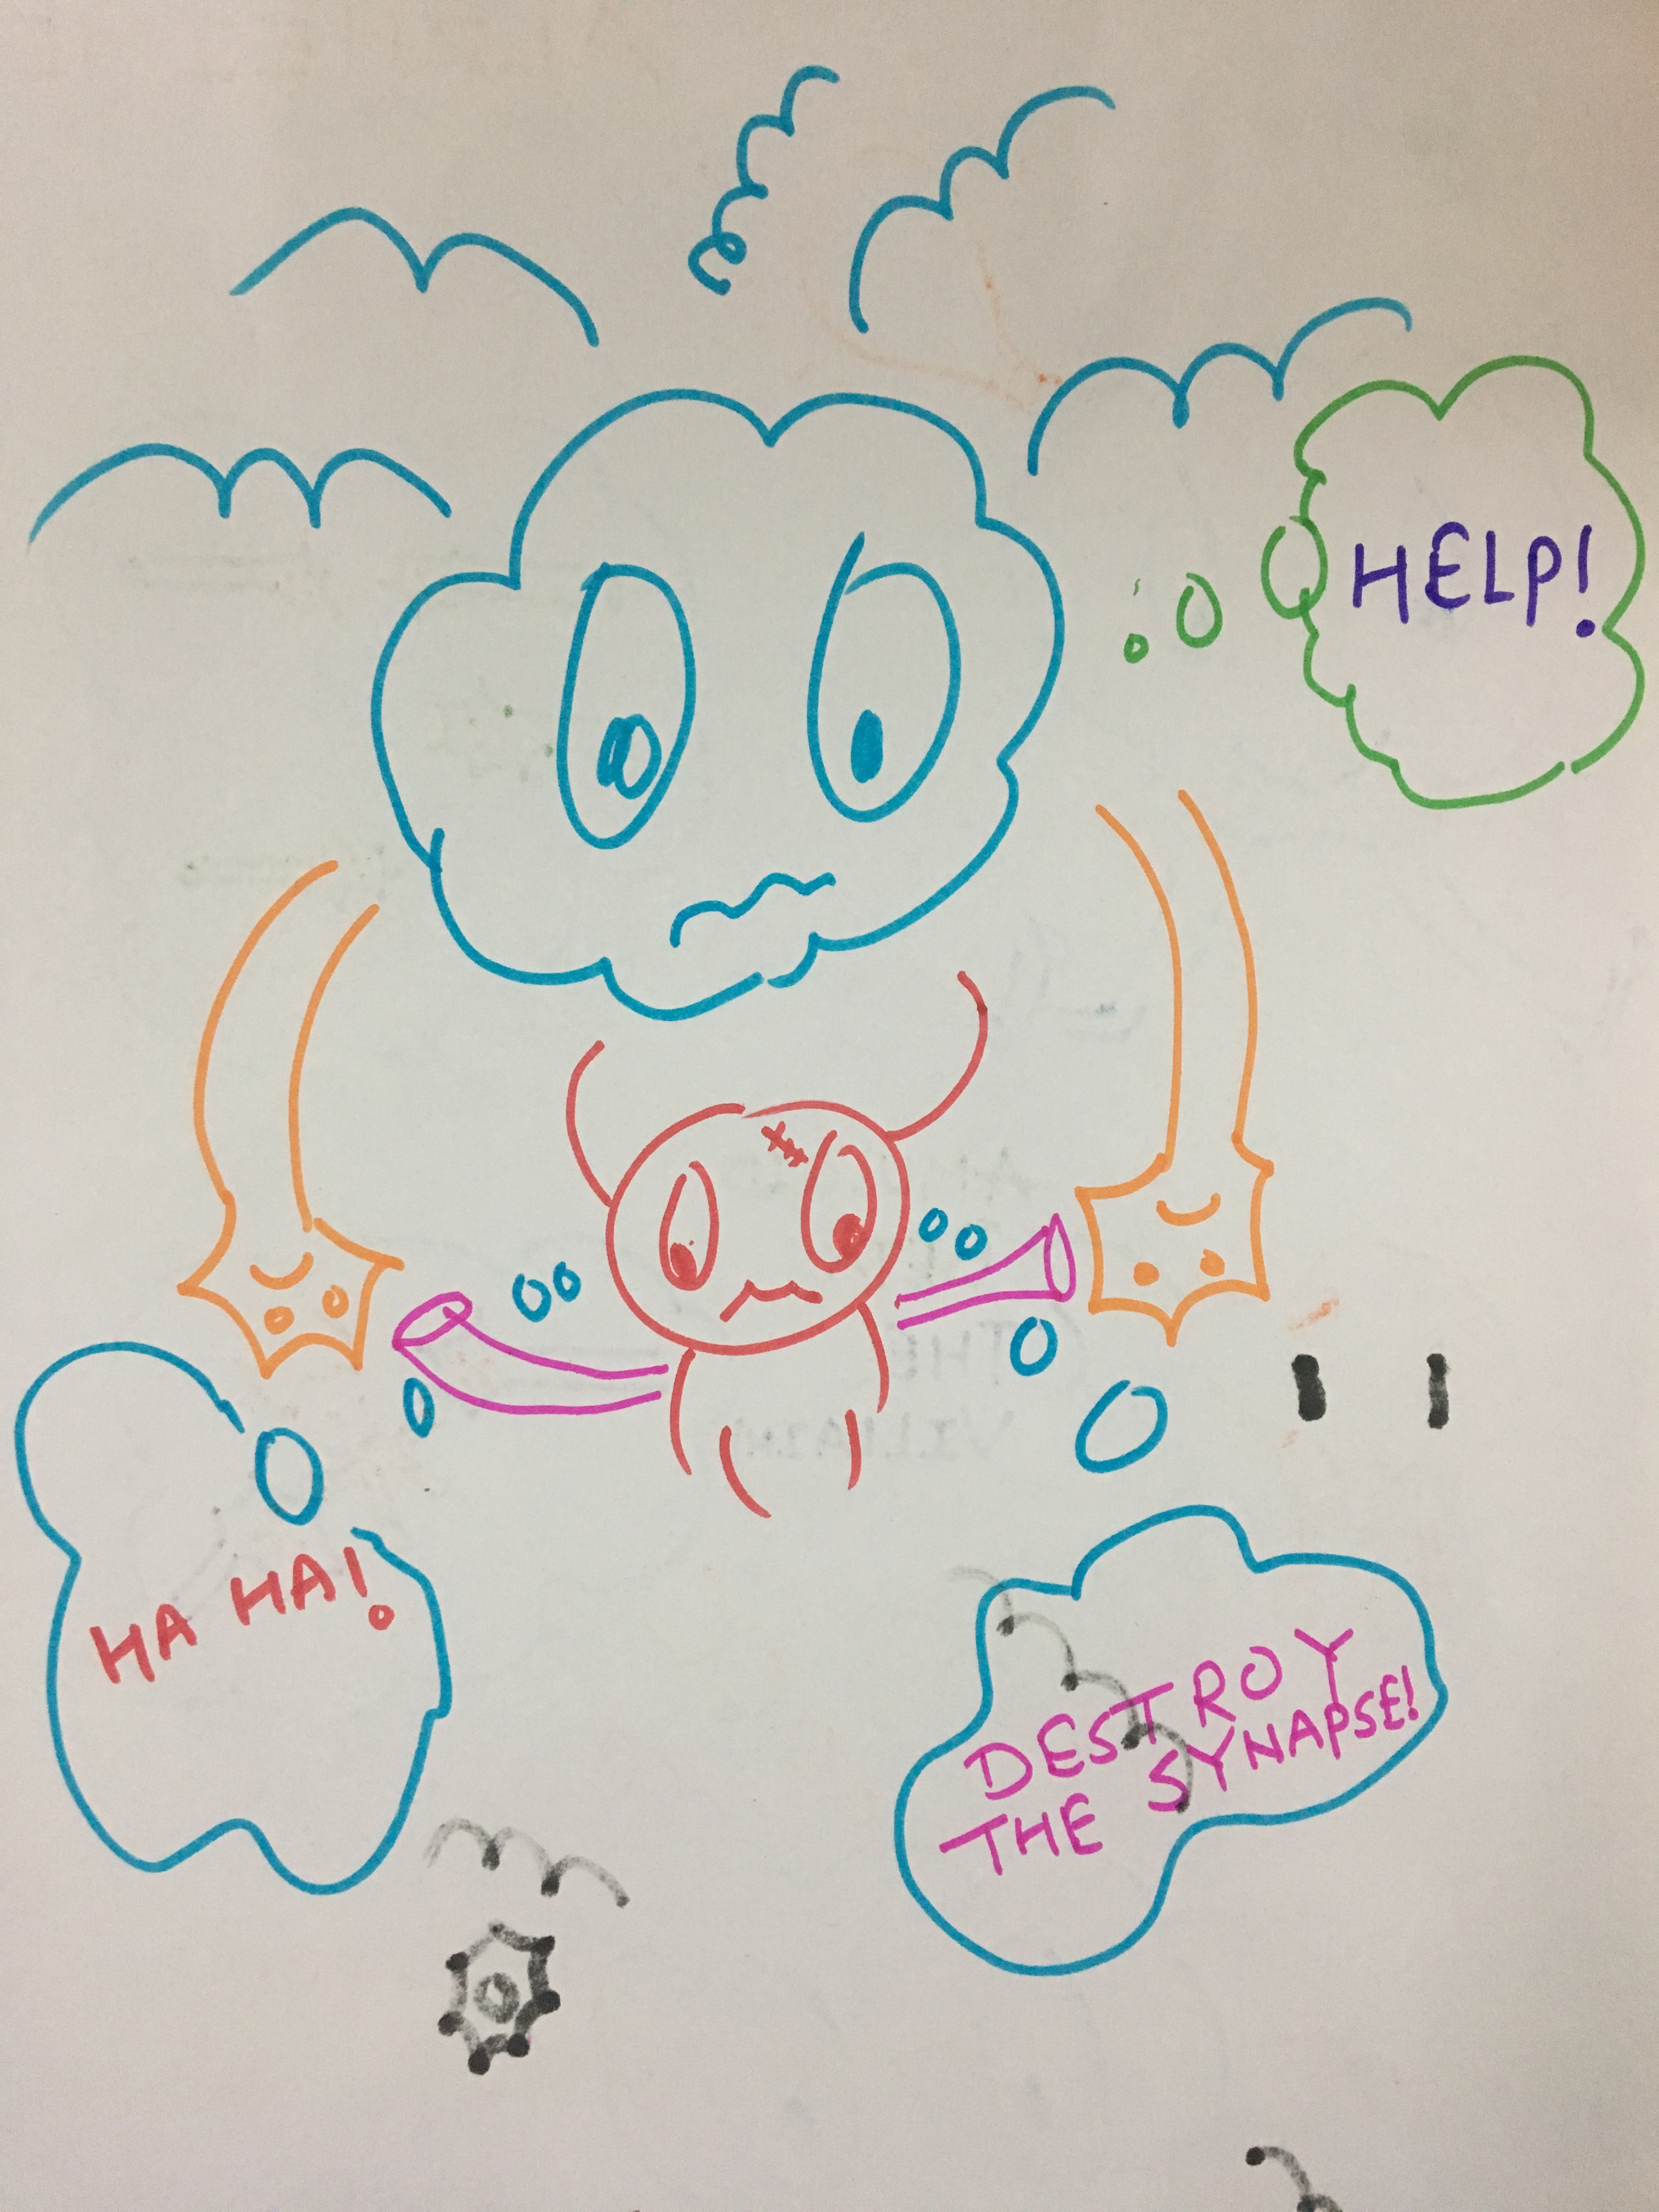 HELP!
HA HA!
DESTROY
THE SYNAPSE!